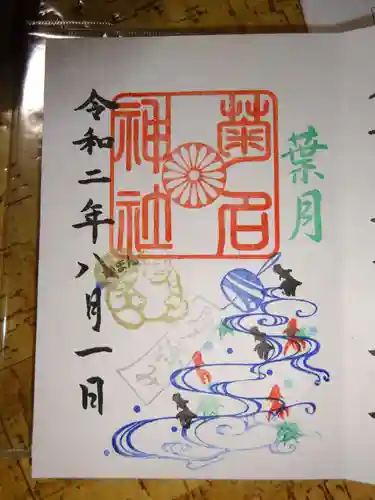 葉月
菊名
神社
令和二年八月一日